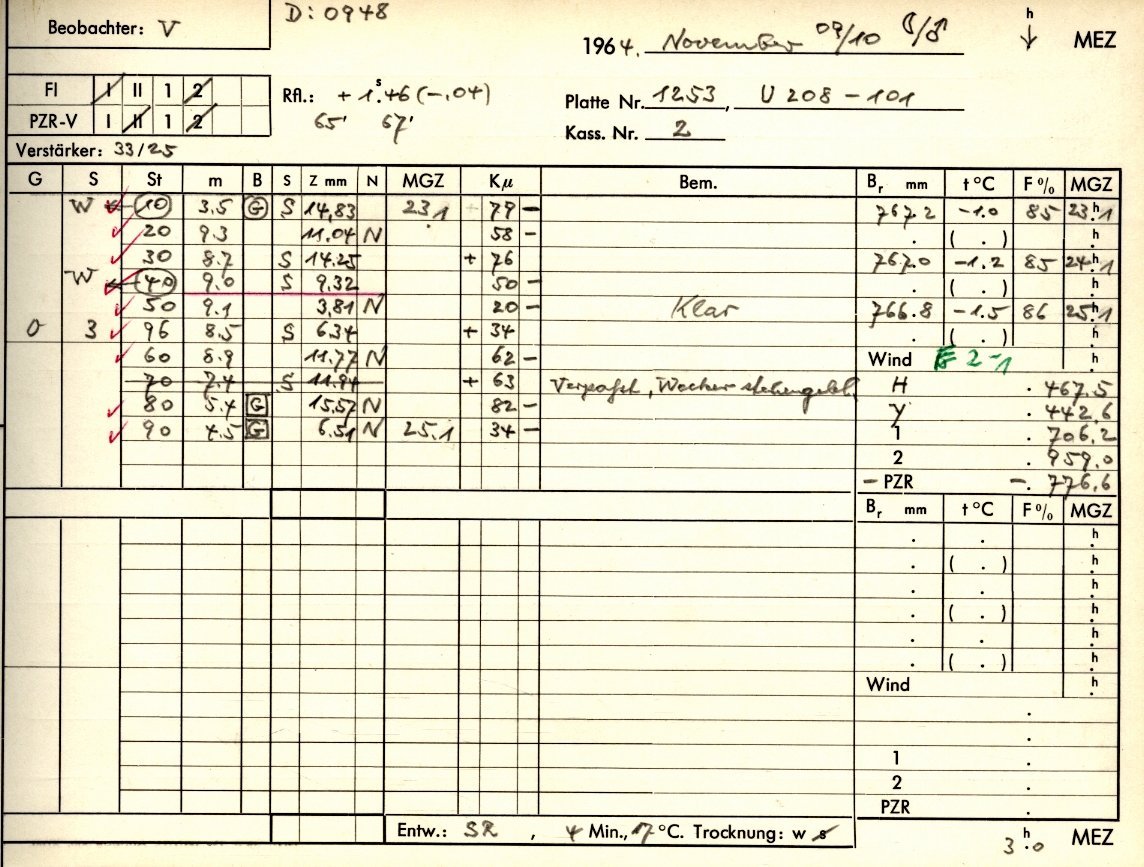 D: 0948
Beobachter: V
1964. November 09/10 ☾/♂ h ↓ MEZ
FI I II 1 2
Rfl.: + 1ˢ.46 (-.04)
Platte Nr. 1253, U 208 - 101
PZR-V I II 1 2
65' 67'
Kass. Nr. 2
Verstärker: 33/25
G S St m B S Z mm N MGZ Kμ Bem. Br mm t °C F % MGZ
W 10 3.5 G S 14,83 23.1 79 - 767.2 -1.0 85 23h.1
20 9.3 11.04 N 58 - . ( . ) h.
30 8.7 S 14.25 + 76 767.0 -1.2 85 24h.1
W 40 9.0 S 9.32 50 - . ( . ) h.
50 9.1 3,81 N 20 - Klar 766.8 -1.5 86 25h.1
0 3 96 8.5 S 6.34 + 34 . ( . ) h.
60 8.9 11.77 N 62 - Wind E 2-1 h.
70 7.4 S 11.94 + 63 Verpaßt, Wecker stehengebl. H . 467.5
80 5.4 G 15.57 N 82 - y . 442.6
90 4.5 G 6.51 N 25.1 34 - 1 . 706.2
2 . 959.0
- PZR -. 776.6
Br mm t °C F % MGZ
. . h.
. ( . ) h.
. . h.
. ( . ) h.
. . h.
. ( . ) h.
Wind h.
.
.
1 .
2 .
PZR .
Entw.: SR, 4 Min., 17 °C. Trocknung: w s
3 h.0 MEZ